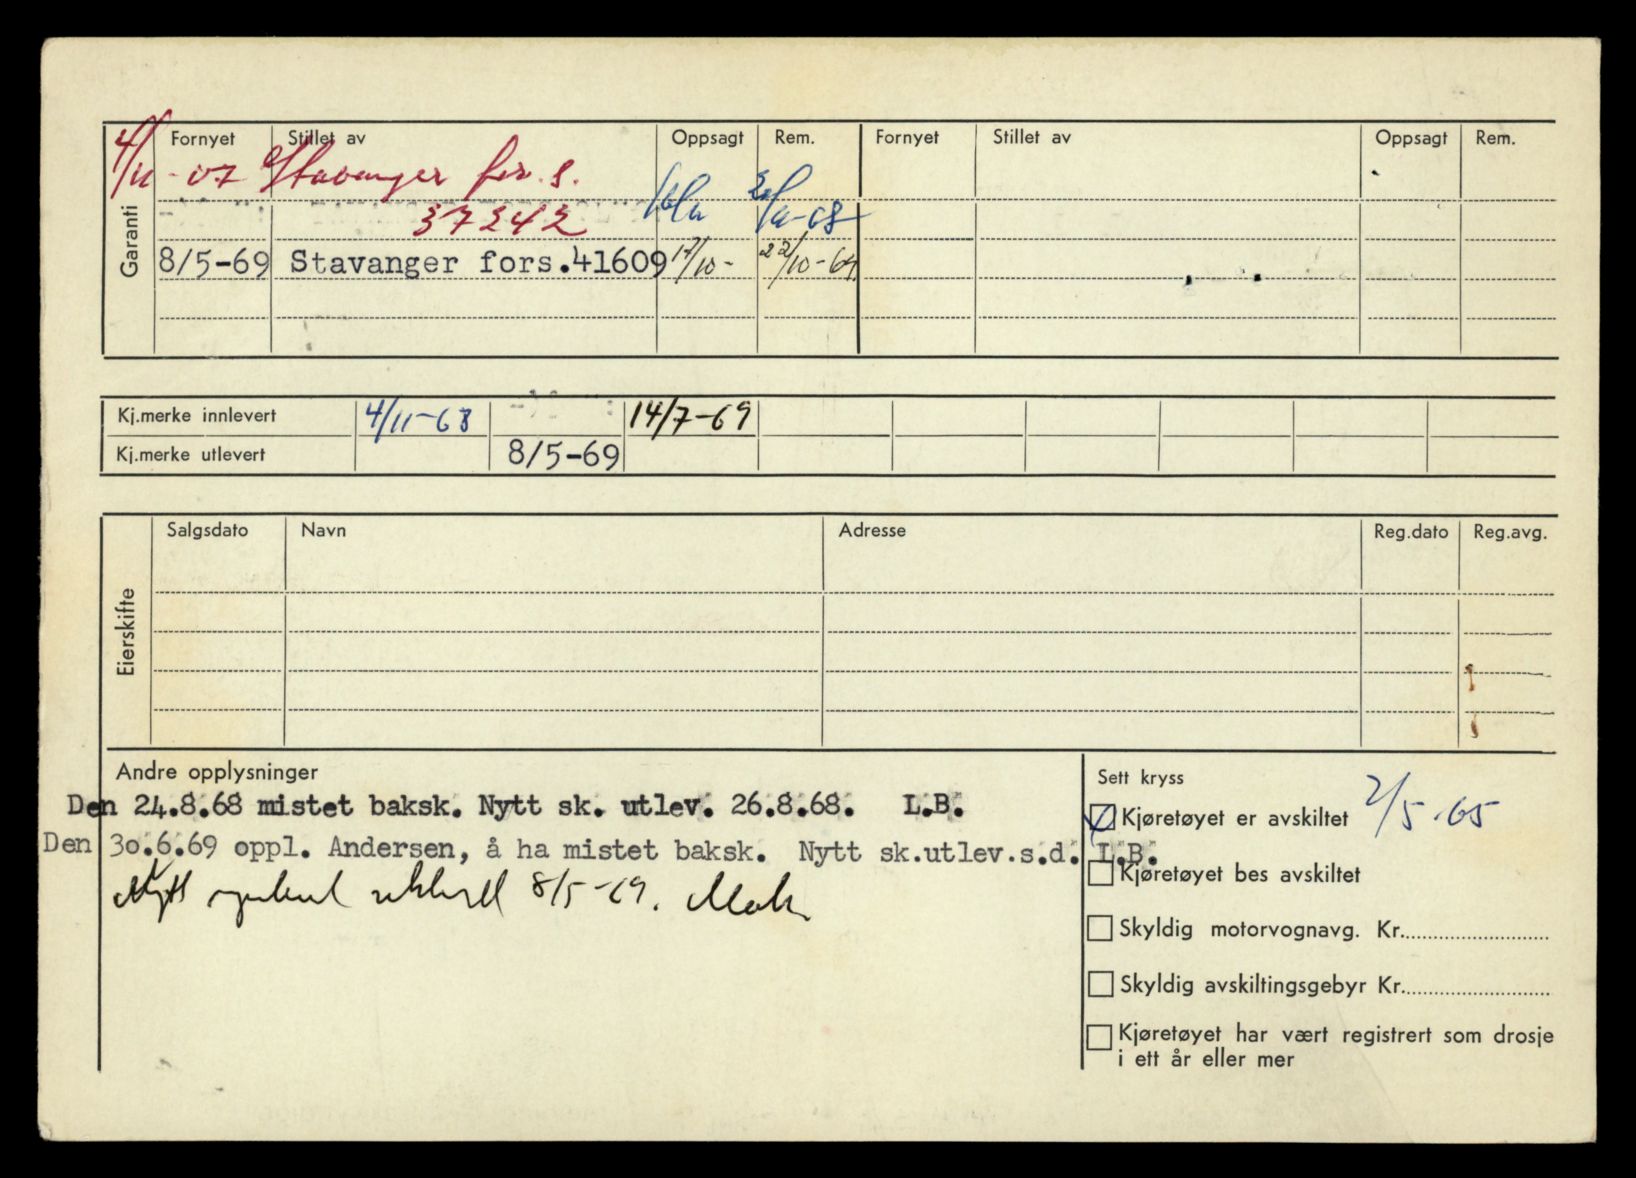 Garanti
Fornyet Stillet av Oppsagt Rem. Fornyet Stillet av Oppsagt Rem.
4/11 Stavanger for.s.
37242 -68
8/5-69 Stavanger fors.41609 17/10- 22/10-69
Kj.merke innlevert 4/11-68 14/7-69
Kj.merke utlevert 8/5-69
Eierskifte
Salgsdato Navn Adresse Reg.dato Reg.avg.
Andre opplysninger
Den 24.8.68 mistet baksk. Nytt sk. utlev. 26.8.68. L.B.
Den 30.6.69 oppl. Andersen, å ha mistet baksk. Nytt sk.utlev.s.d. L.B.
Nytt 8/5-69.
Sett kryss
Kjøretøyet er avskiltet 2/5-65
Kjøretøyet bes avskiltet
Skyldig motorvognavg. Kr.
Skyldig avskiltingsgebyr Kr.
Kjøretøyet har vært registrert som drosje
i ett år eller mer